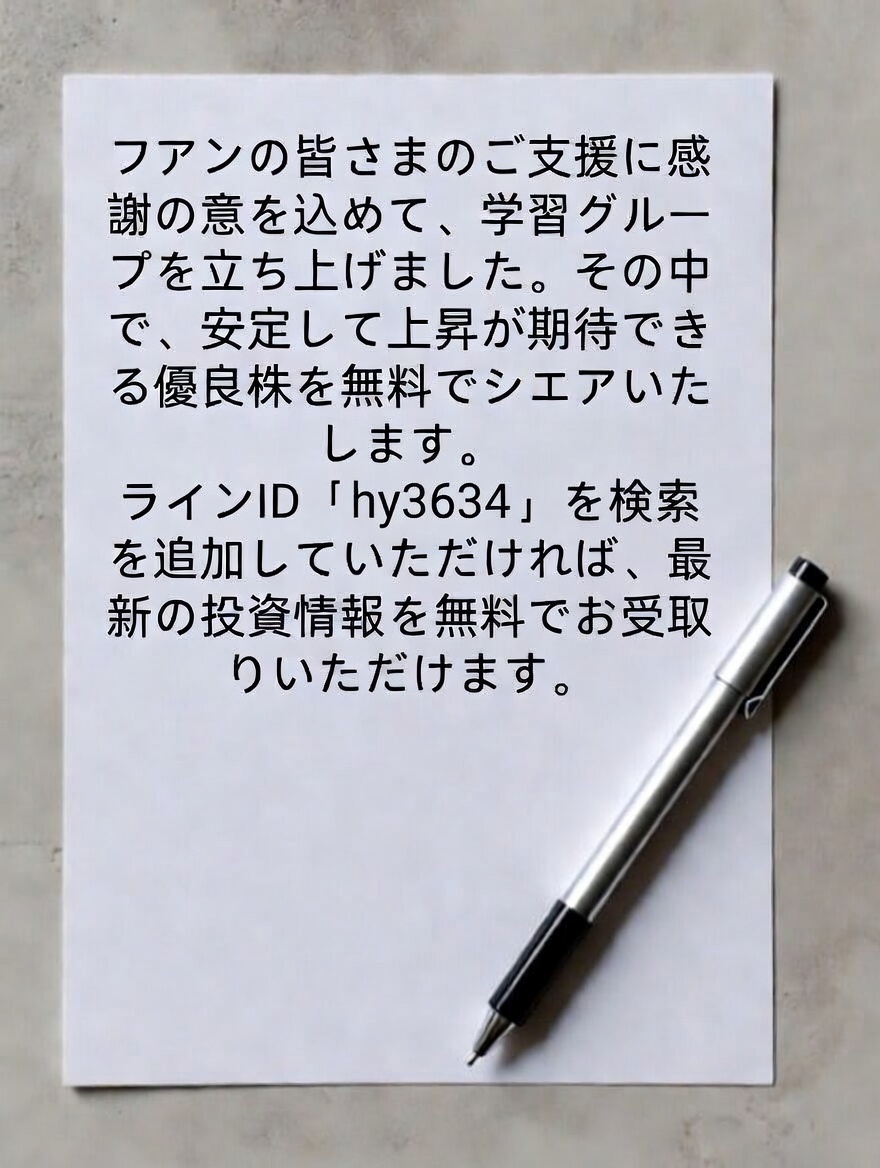 フアンの皆さまのご支援に感
謝の意を込めて、学習グルー
プを立ち上げました。その中
で、安定して上昇が期待でき
る優良株を無料でシエアいた
します。
ラインID「hy3634」を検索
を追加していただければ、最
新の投資情報を無料でお受取
りいただけます。